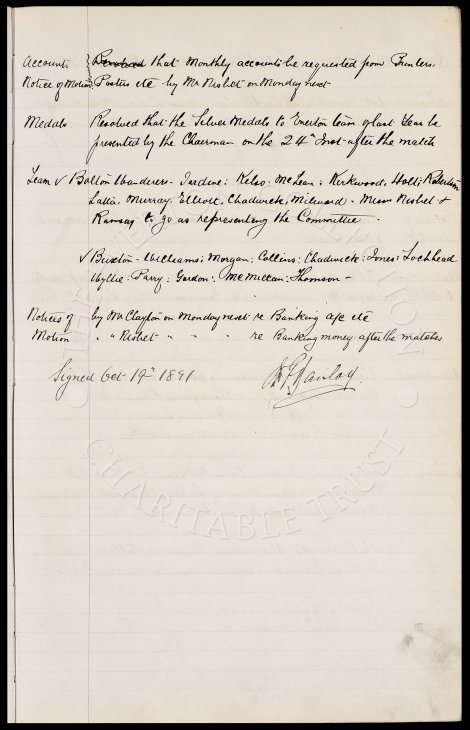 Accounts Resolved that Monthly accounts be requested from Printers,
Notice of Motion Posters etc by Mr Nisbet on Monday next
Medals Resolved that the Silver Medals to Everton team of last Year be
presented by the Chairman on the 24th Inst after the match
Team v Bolton Wanderers - Jardine: Kelso. McLean: Kirkwood, Holt: Robertson
Latta. Murray. Elliott, Chadwick, Milward. - Messrs Nisbet &
Ramsay to go as representing the Committee -
v Buxton - Williams: Morgan: Collins: Chadwick: Jones: Lochhead
Wyllie: Parry: Gordon: McMillan: Thomson -
Notices of by Mr Clayton on Monday next re Banking a/c etc
Motion " " Nisbet " " " re Banking money after the matches
Signed Oct 19th 1891
CHARITABLE TRUST